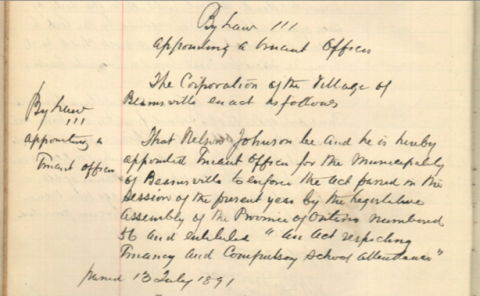 By Law 111
appointing a Truant Officer
The Corporation of the Village of
Beamsville enact as follows
By Law
111
appointing a
Truant officer
That Nelson Johnson be and he is hereby
appointed Truant Officer for the Municipality
of Beamsville to enforce the act passed in the
Session of the present year by the Legislative
Assembly of the Province of Ontario numbered
56 and entituled "An Act respecting
Truancy and Compulsory School Attendance"
passed 13 July 1891